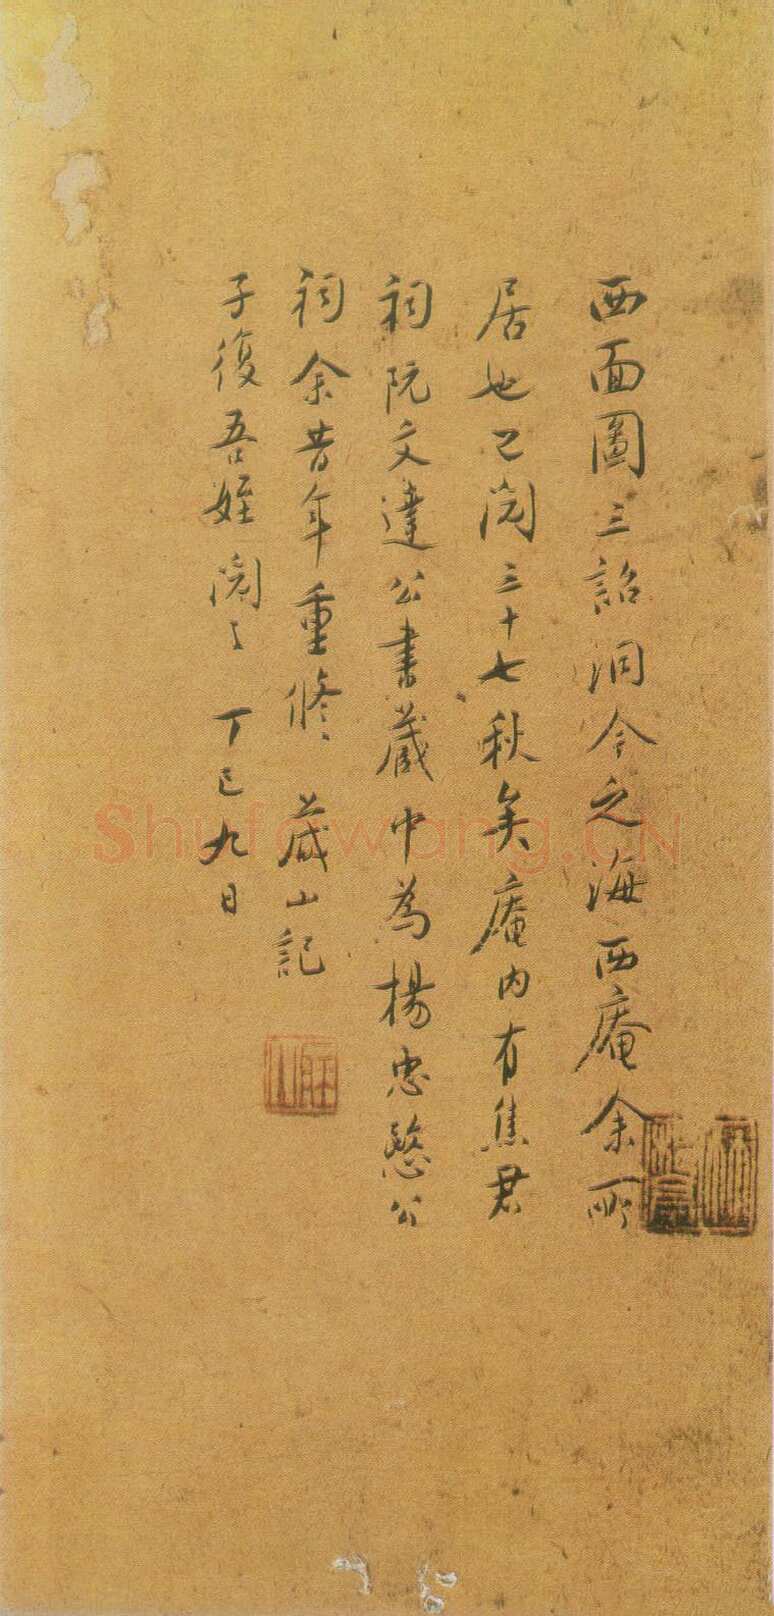 西面圖三詔洞今之海西庵余所
居也已閱三十七秋矣庵內有焦君
祠阮文達公書藏中為楊忠愍公
祠余昔年重修〻藏山記
子復吾姪閱〻丁巳九日
Shufawang.CN